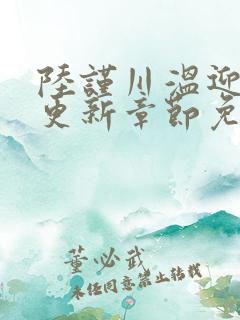 陸謹川溫迎
更新章節免
董必武
未经同意禁止转载